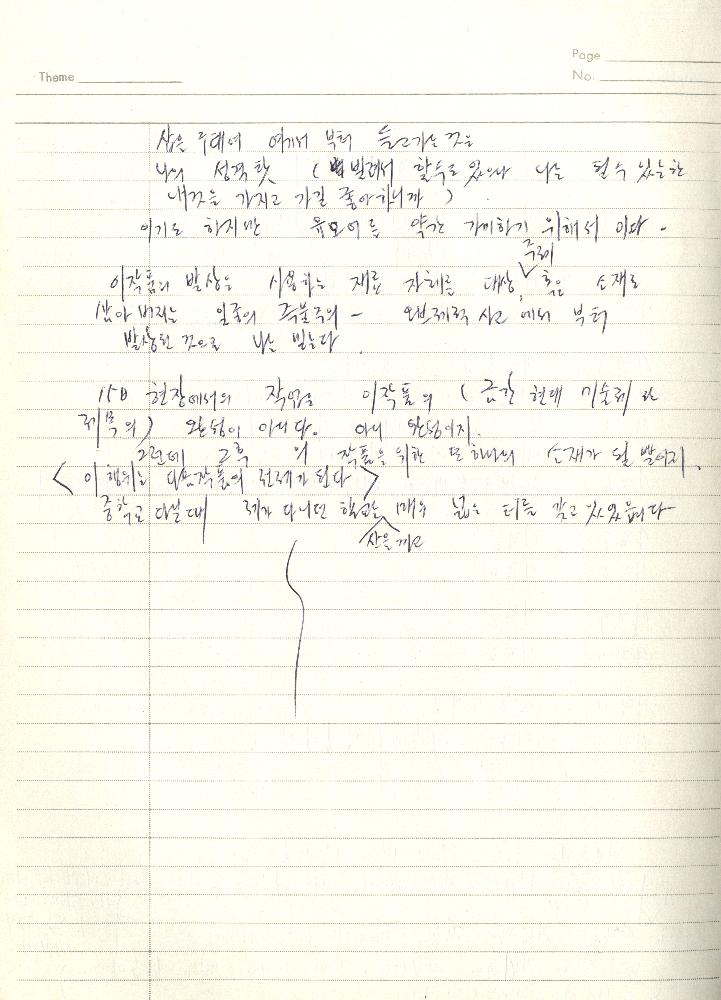 Page
Theme
No.
삽은 구태여 여기서 부터 들고가는 것은
나의 성격 탓 ( 빌려서 할수도 있으나 나는 될 수 있는한
내것을 가지고 가길 좋아하니까 )
이기도 하지만 유모어를 약간 가미하기 위해서 이다 -
주제
이작품의 발상은 사용하는 재료 자체를 대상, 혹은 소재로
삼아 버리는 일종의 즉물주의 - 오브제적 사고 에서 부터
발상된 것으로 나는 믿는다.
현장에서의 작업은 이작품의 ( 현대 미술제
제목의) 완성이 아니다. 아니 완성이지.
그런데 그후 의 작품을 위한 또 하나의 소재가 될 뿐이지.
< 이 행위는 다음작품의 전제가 된다 >
중학교 다닐때 제가 다니던 학교는 매우 넓은 터를 갖고 있었읍니다
산을끼고